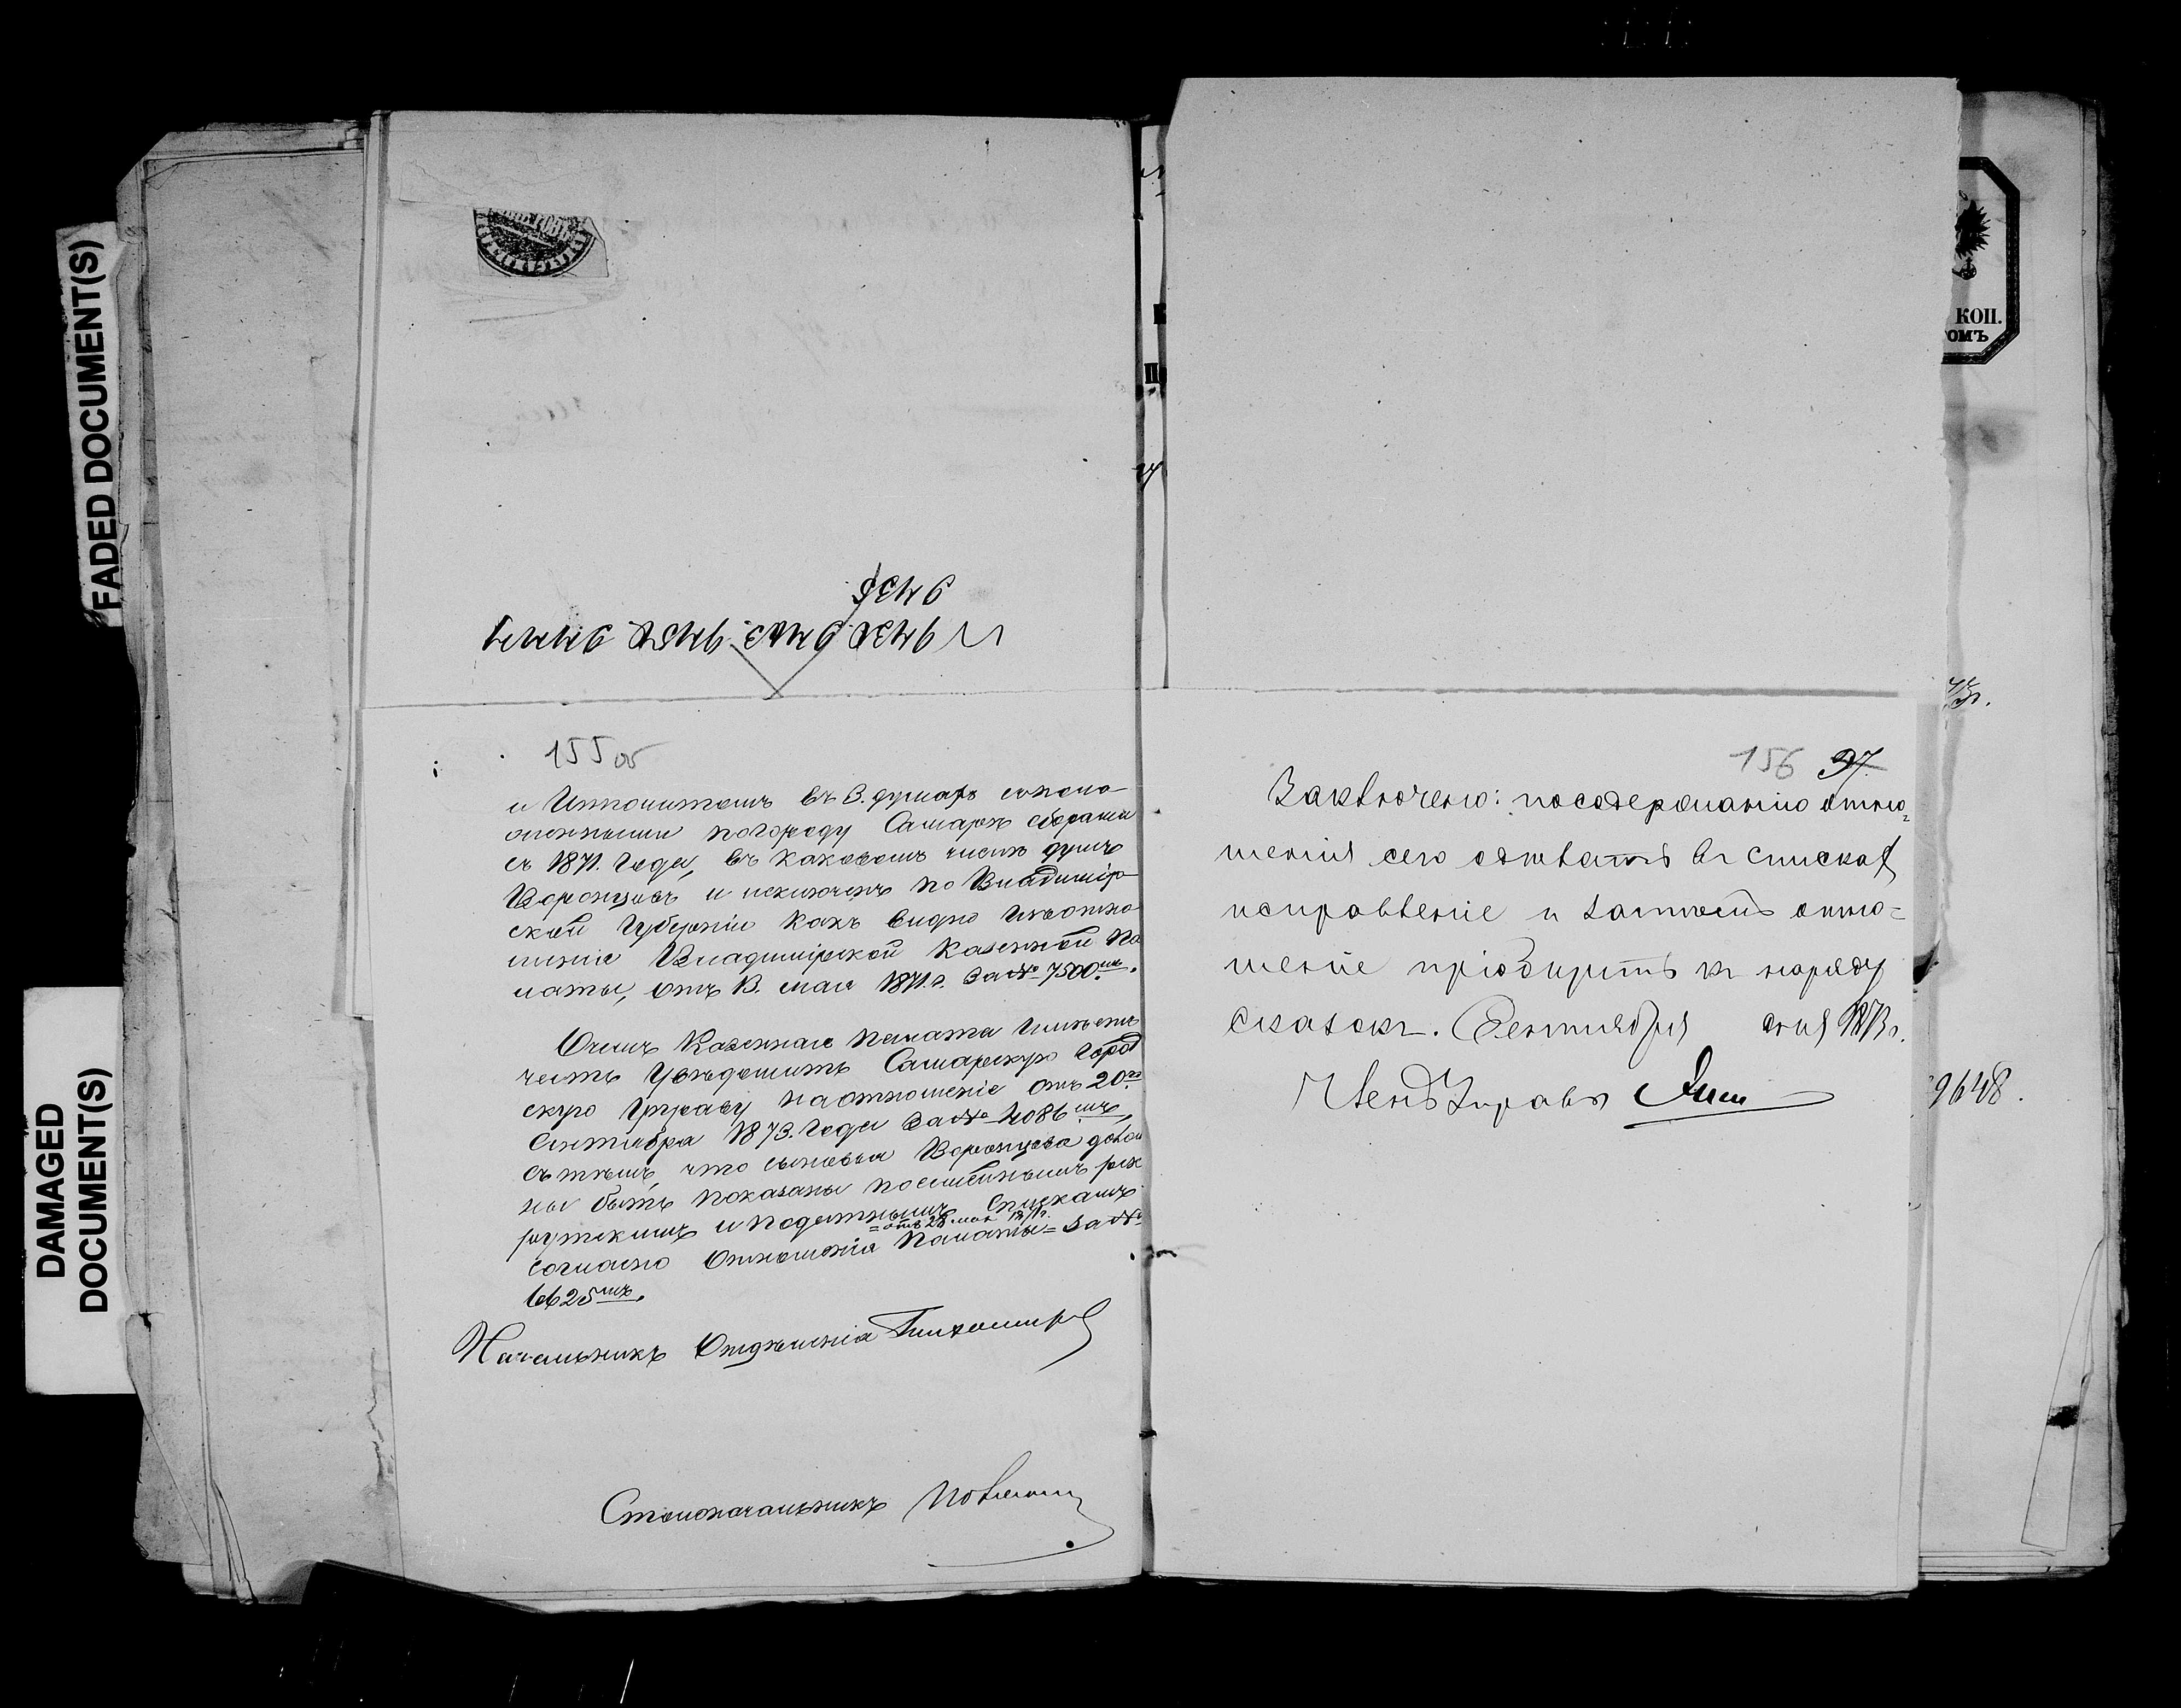 FADED DOCUMENT(S)
DAMAGED
DOCUMENT(S)
155 об
и Ипполитомъ въ 3. душахъ съ поло-
женными по городу Самарѣ сборами
съ 1871. года, въ каковомъ числѣ душъ
Воронцовъ и исключенъ по Владимір-
ской Губерніи какъ видно изъ отно
шенія Владимірской Казенной Па
латы, отъ 13. мая 1871. г. за № 7500.мъ.
О чемъ Казенная Палата имѣетъ
честь увѣдомить Самарскую Город
скую Управу на отношеніе отъ 20го
Сентября 1873. года за № 4086мъ,
съ тѣмъ, что сыновья Воронцова долж
ны быть показаны по семейнымъ рек
рутскимъ и податнымъ спискамъ
согласно отношенія Палаты = за №
= отъ 28 мая 1871 г.
6625мъ.
Начальникъ Отдѣленія Тихомиров
Столоначальникъ
156 97.
Заключено: по содержанію отно
шенія сего сдѣлать въ спискахъ
исправленіе и затѣмъ отно=
шеніе пріобщить къ наряду
сказокъ. Сентября дня 1873 г.
Членъ Управы
КОП.
ОМЪ
9648.